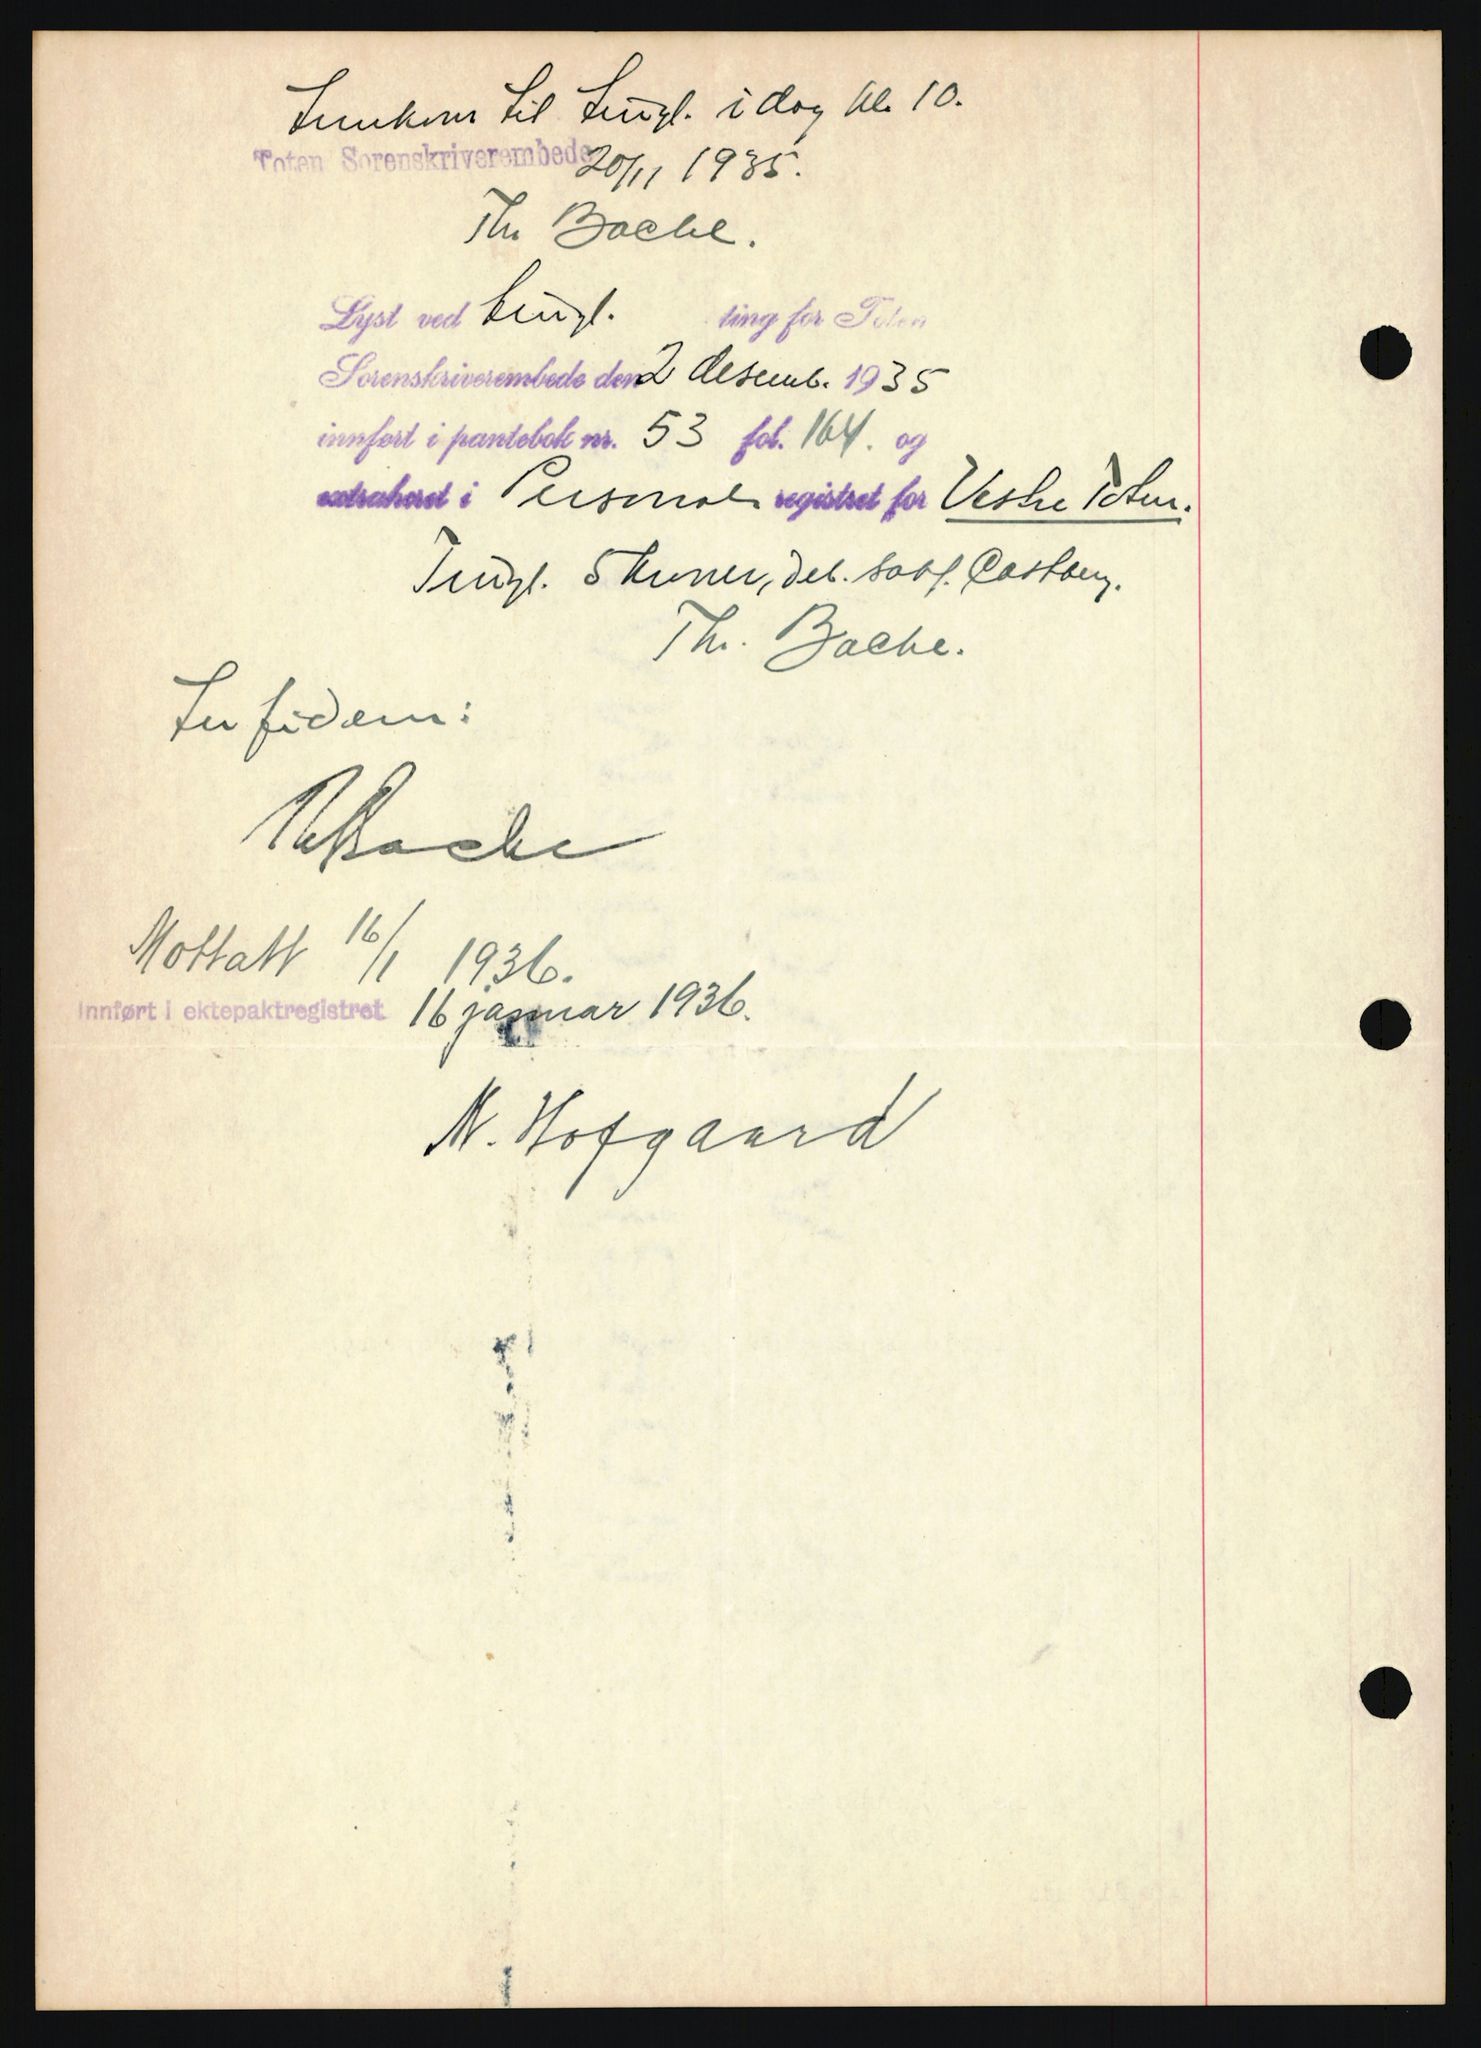 Innkom til tingl. i dag kl. 10.
Toten Sorenskriverembede 20/11 1935.
Th. Bache.
Lyst ved tingl. ting for Toten
Sorenskriverembede den 2 desemb. 1935
innført i pantebok nr. 53 fol. 164. og
extraheret i Personal registret for Vestre Toten.
Tingl. 5 kroner, det. Castberg.
Th. Bache.
In fidem:
Th Bache
Mottatt 16/1 1936.
Innført i ektepaktregistret 16 januar 1936.
N. Hofgaard